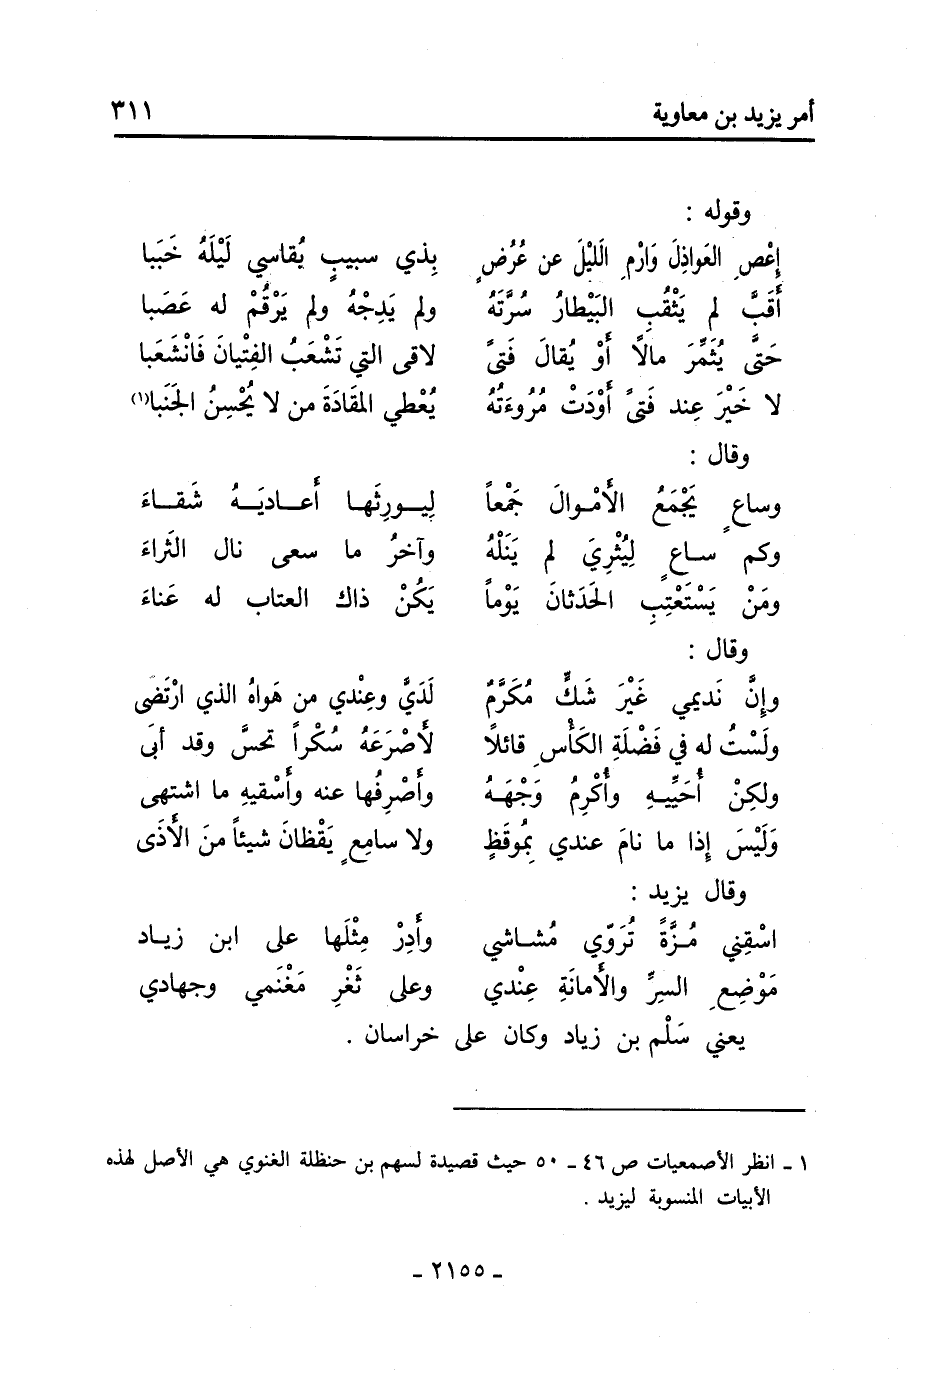 أمر يزيد بن معاوية ٣١١
وقوله :
إِعْصِ العَواذِلَ وَارْمِ الَليْلَ عن عُرُضٍ بِذي سبيبٍ يُقاسي لَيْلَهُ خَبَبا
أَقَبَّ لم يَثْقُبِ البَيْطارُ سُرَّتَهُ ولم يَدِجْهُ ولم يَرْقُمْ له عَصَبا
حَتَّى يُثَمِّرَ مالًا أَوْ يُقالَ فَتىً لاقى التي تَشْعَبُ الفِتْيانَ فَانْشَعَبا
لا خَيْرَ عِند فَتىً أَوْدَتْ مُرُوءَتُهُ يُعْطي المقَادَةَ من لا يُحْسِنُ الجَنَبا(١)
وقال :
وساعٍ يَجْمَعُ الأَمْوالَ جَمْعاً لِيـورِثَها أَعـاديَـهُ شَقـاءَ
وكم سـاعٍ لِيُثْرِيَ لم يَنَلْهُ وآخرُ ما سعى نال الثَراءَ
ومَنْ يَسْتَعْتِبِ الحَدَثانَ يَوْماً يَكُنْ ذاك العتاب له عَناءَ
وقال :
وإِنَّ نَديمي غَيْرَ شَكٍّ مُكَرَّمٌ لَدَيَّ وعِنْدي من هَواهُ الذي ارْتَضَى
ولَسْتُ له في فَضْلَةِ الكَأْسِ قائلًا لأَصْرَعَهُ سُكْراً تحسَّ وقد أبَى
ولكِنْ أُحَيِّيـهِ وأُكْرِمُ وَجْهَـهُ وأَصْرِفُها عنه وأَسْقيهِ ما اشتهى
وَلَيْسَ إِذا ما نامَ عندي بِمُوقَظٍ ولا سامِعٍ يَقْظانَ شيئاً منَ الأَذَى
وقال يزيد :
اسْقِني مُـزَّةً تُرَوّي مُشـاشي وأَدِرْ مِثْلَها على ابن زيـاد
مَوْضِعِ السرِّ والأَمانَةِ عِنْدي وعلى ثَغْرِ مَغْنَمي وجهادي
يعني سَلْم بن زياد وكان على خراسان .
١ ـ انظر الأصمعيات ص ٤٦ ـ ٥٠ حيث قصيدة لسهم بن حنظلة الغنوي هي الأصل لهذه
الأبيات المنسوبة ليزيد .
ـ ٢١٥٥ ـ